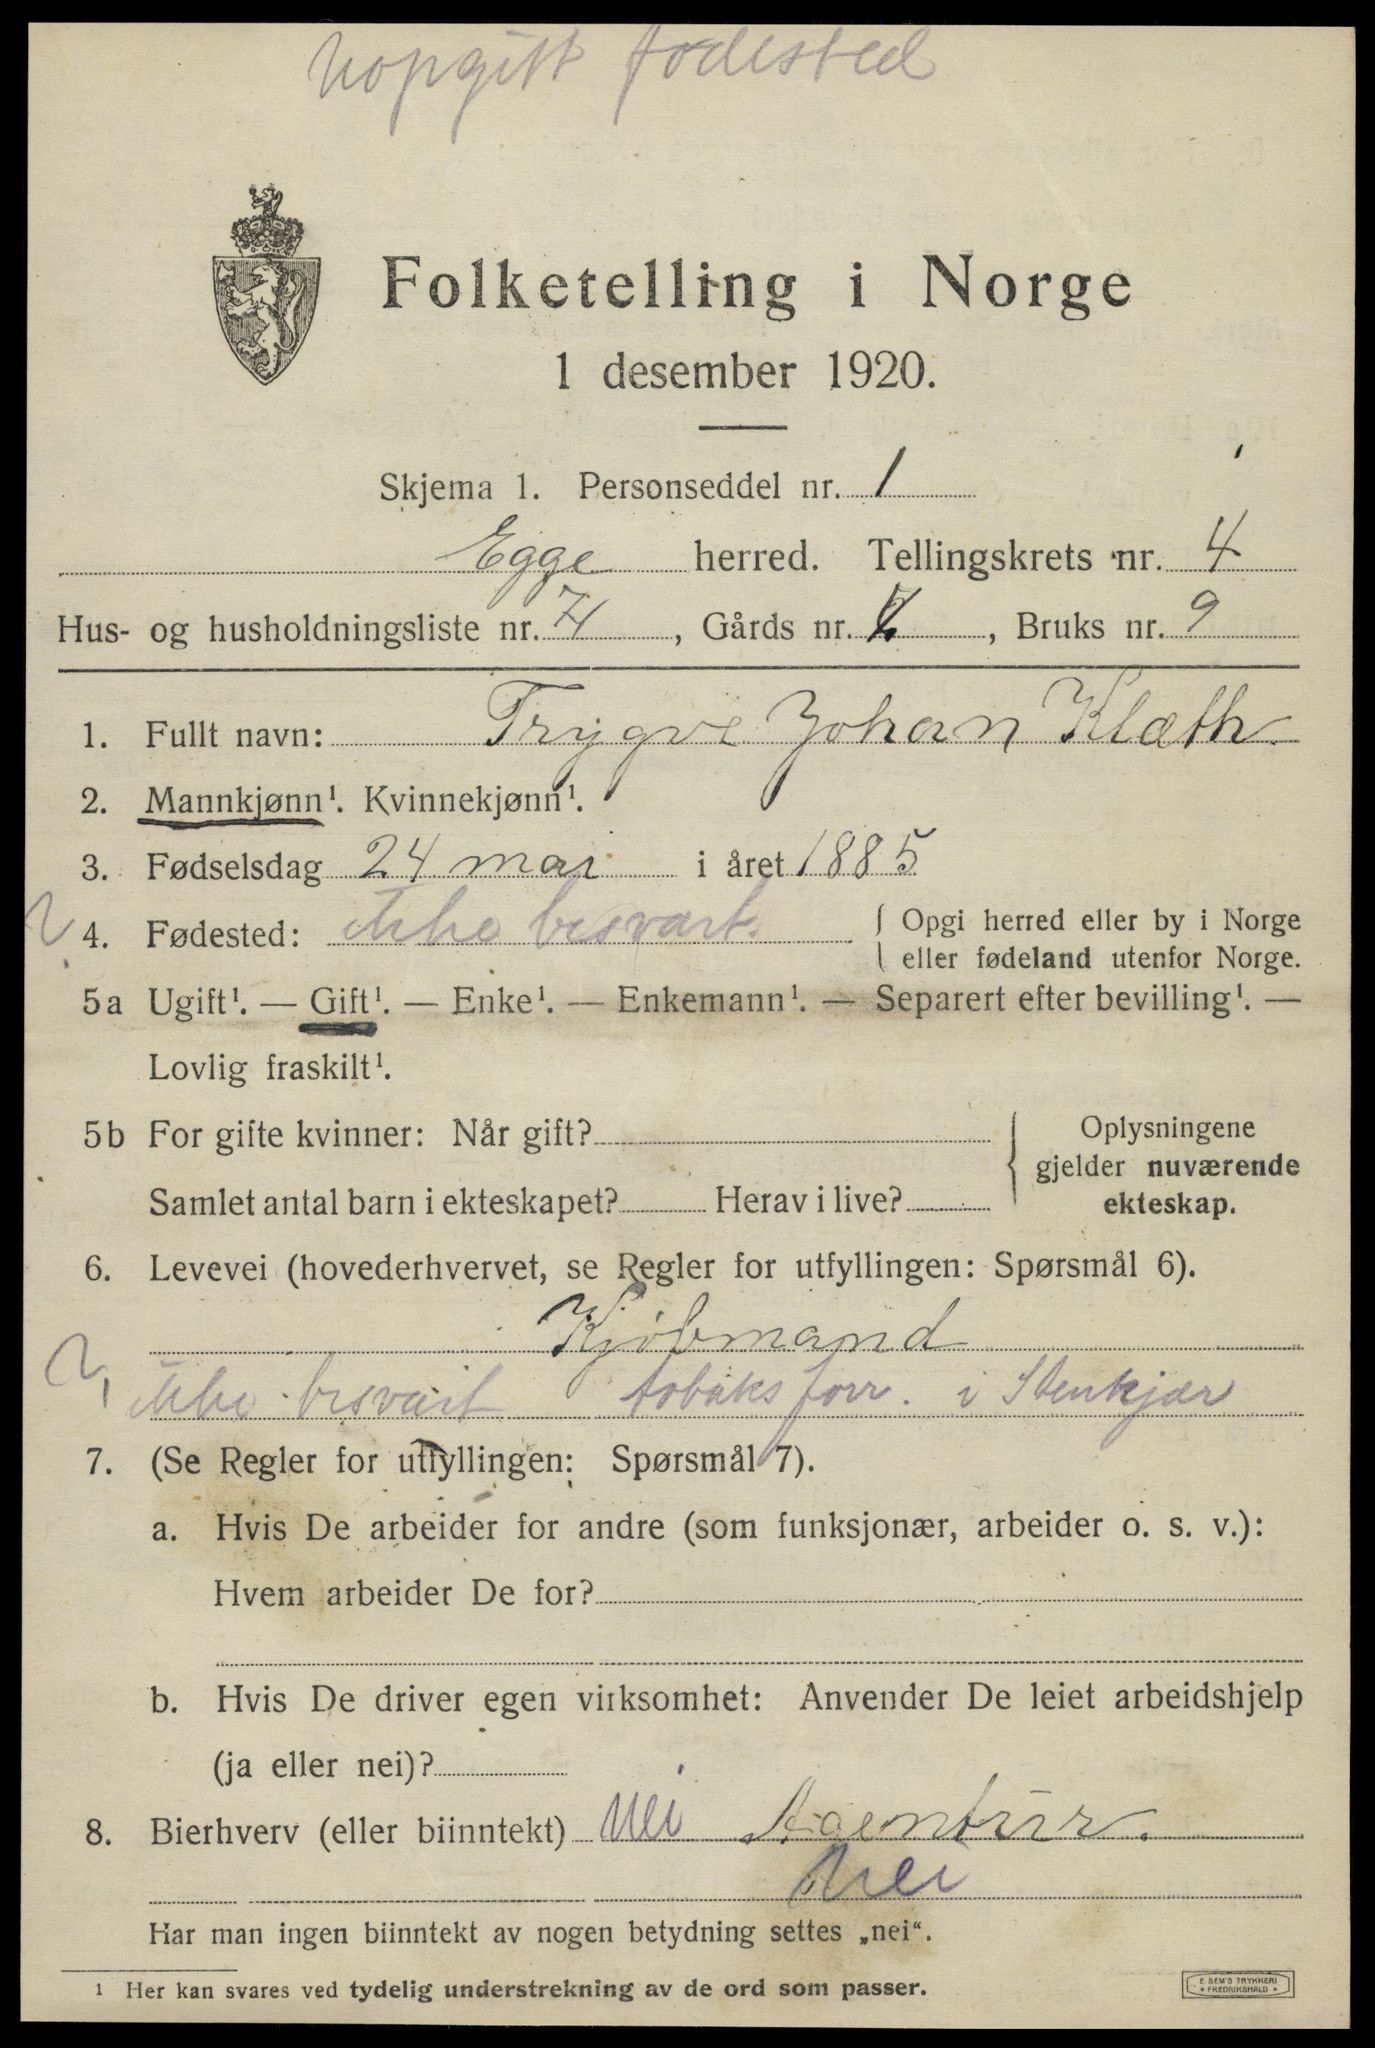 uopgitt fødested
Folketelling i Norge
1 desember 1920.
Skjema 1. Personseddel nr. 1
Egge herred. Tellingskrets nr. 4
Hus- og husholdningsliste nr. 74, Gårds nr., Bruks nr. 9
1. Fullt navn: Trygve Johan Klæth
2. Mannkjønn¹. Kvinnekjønn¹.
3. Fødselsdag 24 mai i året 1885
4. Fødested: ikke besvart. Opgi herred eller by i Norge
eller fødeland utenfor Norge.
5a Ugift¹. — Gift¹. — Enke¹. — Enkemann¹. — Separert efter bevilling¹. —
Lovlig fraskilt¹.
5b For gifte kvinner: Når gift? Oplysningene
gjelder nuværende
Samlet antal barn i ekteskapet? Herav i live? ekteskap.
6. Levevei (hovederhvervet, se Regler for utfyllingen: Spørsmål 6).
Kjøbmand
ikke besvart tobaksforr. i Stenkjær
7. (Se Regler for utfyllingen: Spørsmål 7).
a. Hvis De arbeider for andre (som funksjonær, arbeider o. s. v.):
Hvem arbeider De for?
b. Hvis De driver egen virksomhet: Anvender De leiet arbeidshjelp
(ja eller nei)?
8. Bierhverv (eller biinntekt) Nei Agentur.
Nei
Har man ingen biinntekt av nogen betydning settes „nei“.
¹ Her kan svares ved tydelig understrekning av de ord som passer.
E. SEM'S TRYKKERI
FREDRIKSHALD